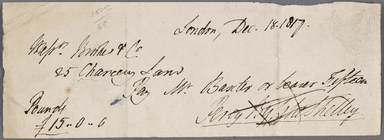 London, Dec. 18. 1817.
Messrs. Brookes & Co
25 Chancery Lane
Pay Mr. Baxter or bearer Fifteen
Pounds
£15-0-0
Percy B. Shelley